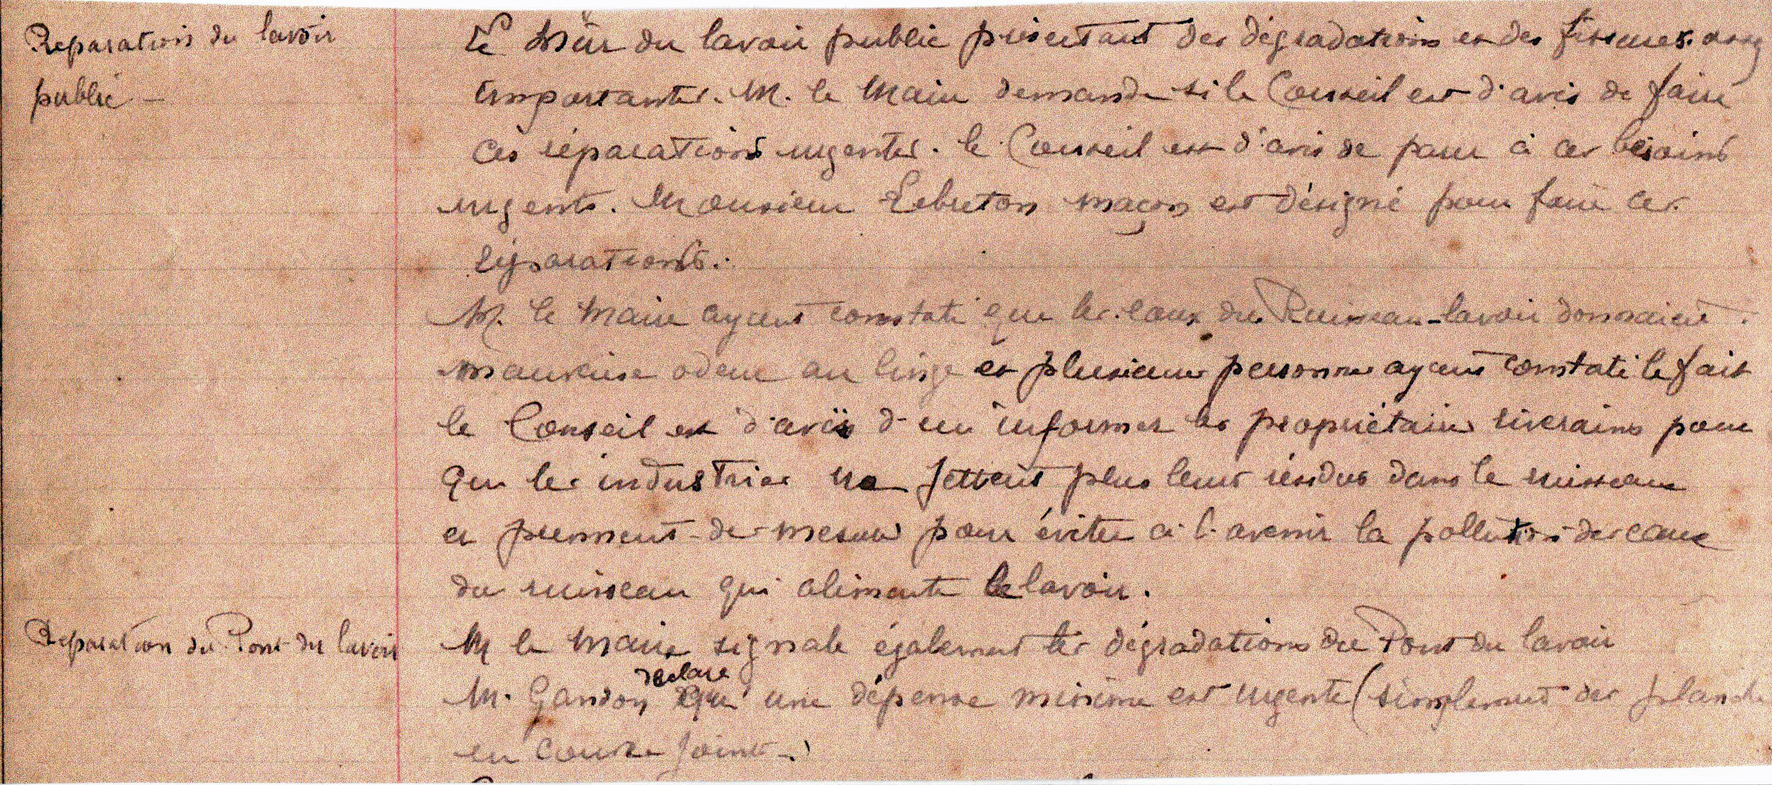 Reparation du lavoir
public —
Le mur du lavoir public présentant des dégradations et des fissures assez
importantes. M. le Maire demande si le Conseil est d'avis de faire
ces réparations urgentes. le Conseil est d'avis de parer à ces besoins
urgents. Monsieur Lebreton maçon est désigné pour faire ces
réparations.
M. le Maire ayant constaté que les eaux du Ruisseau-lavoir donnaient
mauvaise odeur au linge et plusieurs personnes ayant constaté le fait
le Conseil est d'avis d'en informer les propriétaires riverains pour
que les industries ne jettent plus leurs résidus dans le ruisseau
et prennent des mesures pour éviter à l'avenir la pollution des eaux
du ruisseau qui alimente le lavoir.
Reparation du Pont du lavoir
M le Maire signale également les dégradations du Pont du lavoir
M. Gandon déclare qu'une dépense minime est urgente (simplement des planches
en couvre joints.)